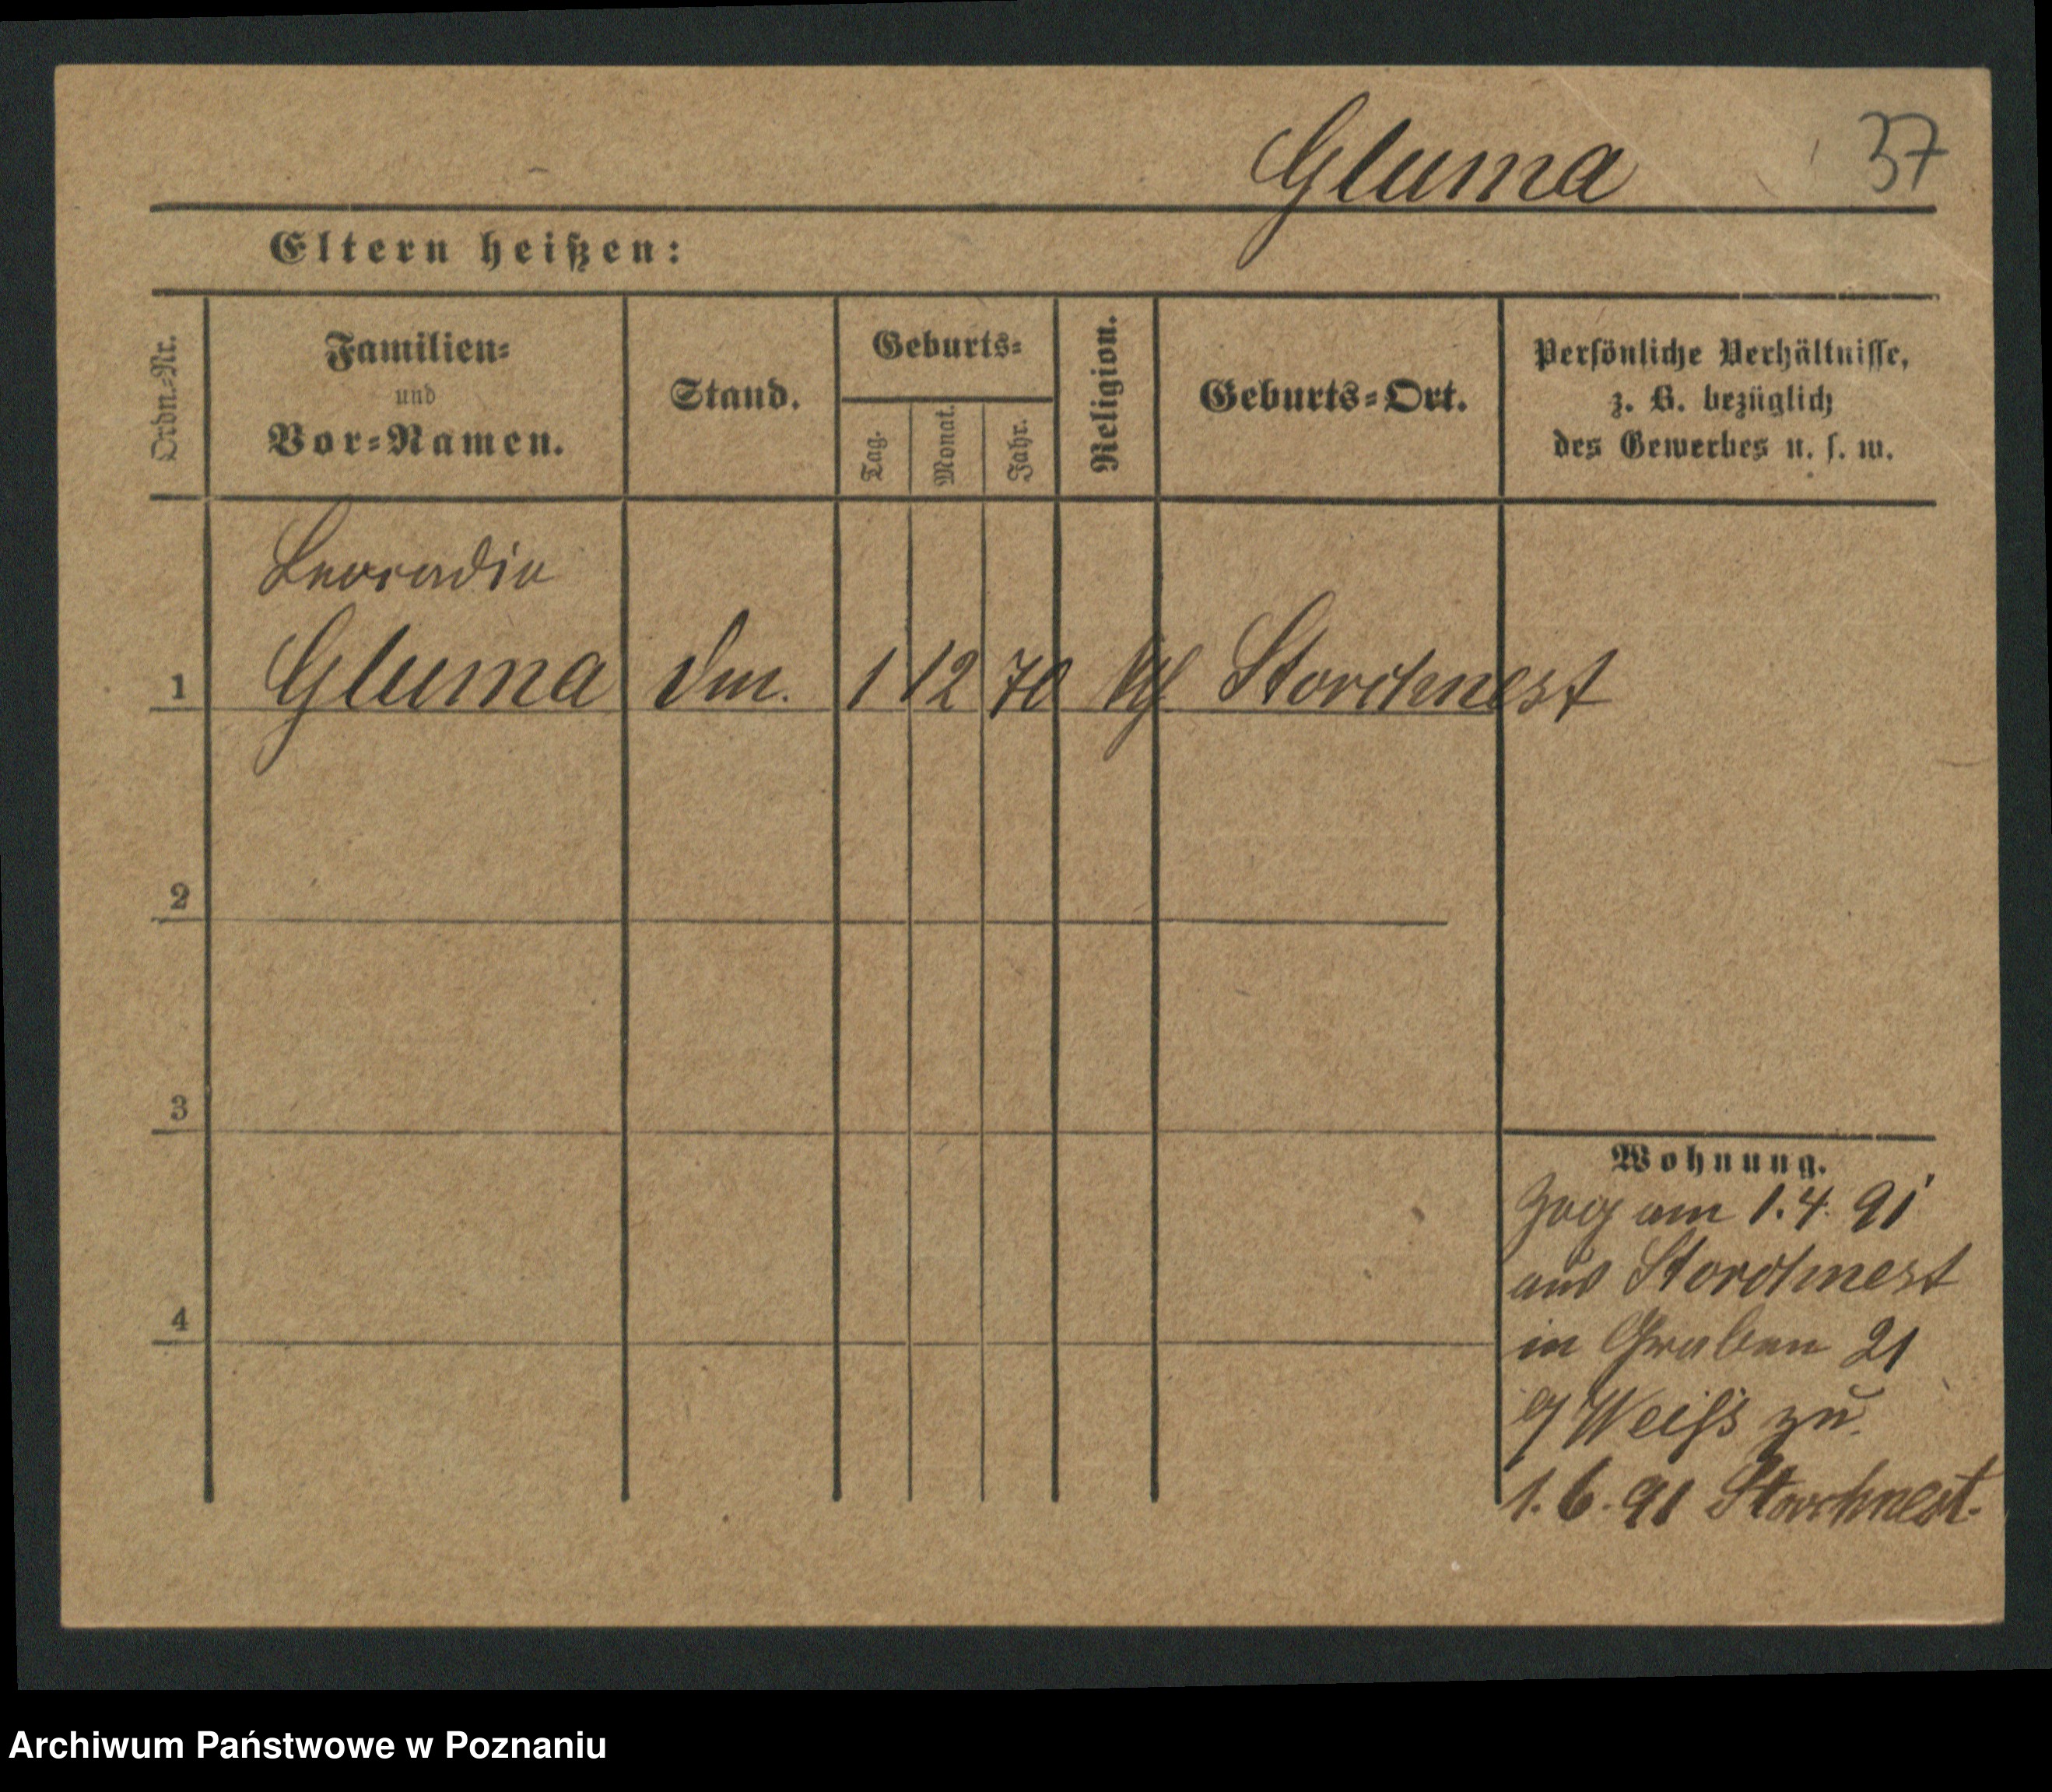 Gluma 37
Eltern heißen:
Ordn.=Nr.
Familien=
und
Vor=Namen.
Stand.
Geburts=
Tag.
Monat.
Jahr.
Religion.
Geburts=Ort.
Persönliche Verhältnisse,
z. B. bezüglich
des Gewerbes u. s. w.
Leocadia
1 Gluma 1 12 70 Storchnest
2
3
4
Wohnung.
Zog am 1. 4. 91
aus Storchnest
in Graben 21
Weiß zu
1. 6. 91 Storchnest.
Archiwum Państwowe w Poznaniu